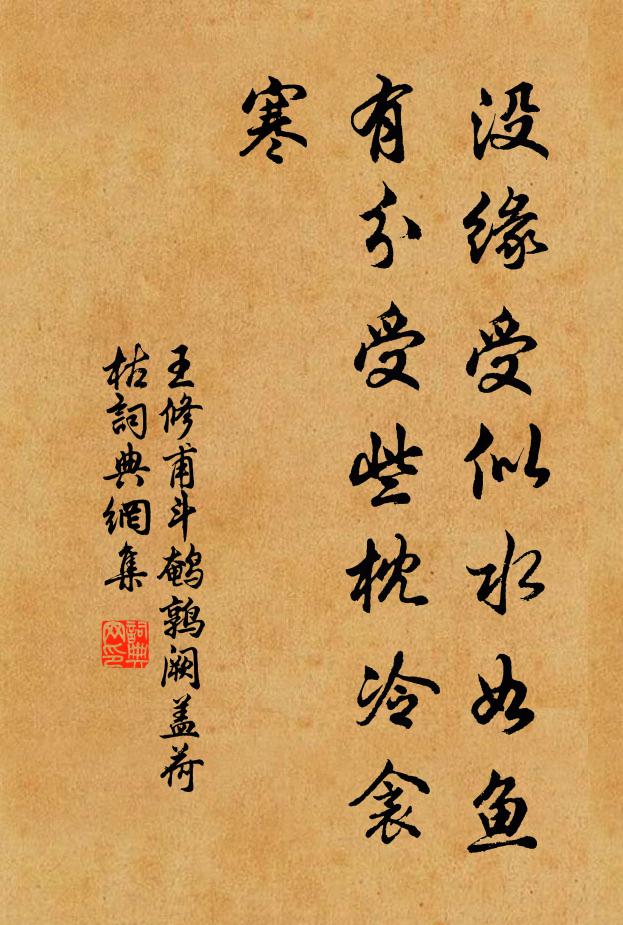 没缘受似水如鱼
有分受些枕冷衾
寒
王修甫斗鹌鹑阙盖荷
枯詞典網集
詞典
网印